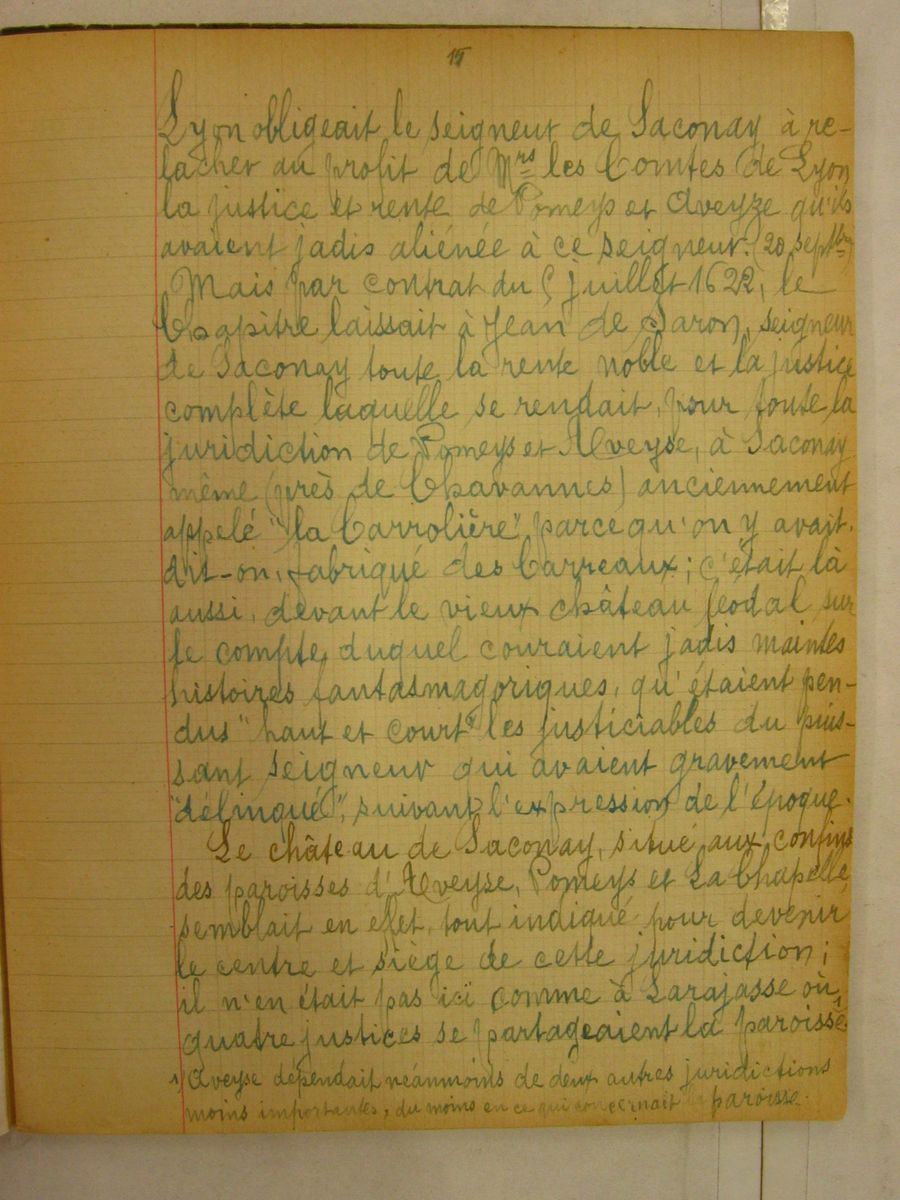 15
Lyon obligeait le seigneur de Saconay à re-
lacher au profit de Mrs les Comtes de Lyon
la justice et rente de Pomeys et Aveyze qu'ils
avaient jadis aliénée à ce seigneur. (20 septbre)
Mais par contrat du 9 juillet 1622, le
Chapitre laissait à Jean de Saron, seigneur
de Saconay toute la rente noble et la justice
complète laquelle se rendait, pour toute la
juridiction de Pomeys et Aveyse, à Saconay
même (près de Chavannes) anciennement
appelé "la Carrolière", parce qu'on y avait,
dit-on, fabriqué des Carreaux; c'était là
aussi, devant le vieux château féodal sur
le compte duquel couraient jadis maintes
histoires fantasmagoriques, qu'étaient pen-
dus "haut et court" les justiciables du puis-
sant seigneur qui avaient gravement
"délinqué", suivant l'expression de l'époque.
Le château de Saconay, situé aux confins
des paroisses d'Aveyse, Pomeys et La Chapelle,
semblait en effet, tout indiqué pour devenir
le centre et siège de cette juridiction;
il n'en était pas ici comme à Larajasse où
quatre justices se partageaient la paroisse.1
1) Aveyse dépendait néanmoins de deux autres juridictions
moins importantes, du moins en ce qui concernait la paroisse.